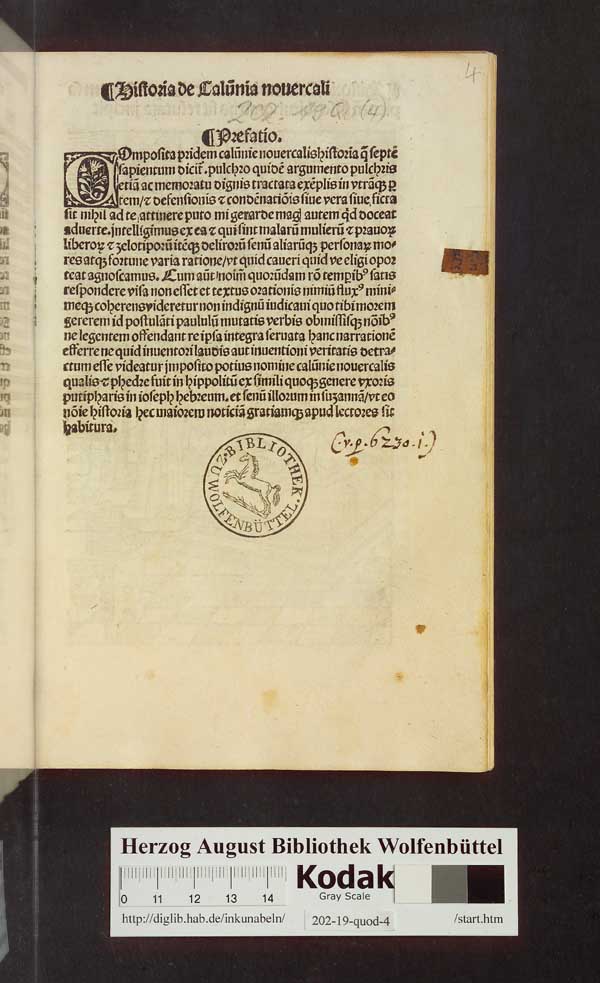 4
¶Historia de Calūnia nouercali
202. 19 Q (4)
¶Prefatio.
COmposita pridem calūnie nouercalis historia q̄ septē
sapientum dicit᷒. pulchro quidē argumento pulchris
etiā ac memoratu dignis tractata exēplis in vtrāqꝫ ꝑ
tem/⁊ defensionis ⁊ condēnatiōis siue vera siue ficta
sit nihil ad te attinere puto mi gerarde mag̃ autem qd̓ doceat
aduerte. intelligimus ex ea ⁊ qui sint malarū mulierū ⁊ prauoꝝ
liberoꝝ ⁊ zelotiporū itēqꝫ delirorū senū aliarūqꝫ personaꝝ mo-
res atqꝫ fortune varia ratione/vt quid caueri quid ve eligi opor
teat agnoscamus. Cum aūt/noīm quorūdam rō tempibꝰ satis
respondere visa non esset et textus orationis nimiū fluxꝰ mini-
meqꝫ coherens videretur non indignū iudicaui quo tibi morem
gererem id postulāti paululū mutatis verbis obmissisqꝫ nōībꝰ
ne legentem offendant re ipsa integra seruata hanc narrationē
efferre ne quid inuentori laudis aut inuentioni veritatis detra-
ctum esse videatur imposito potius nomine calūnie nouercalis
qualis ⁊ phedre fuit in hippolitū ex simili quoqꝫ genere vxoris
putipharis in ioseph hebreum. et senū illorum in suzannā/vt eo
nōie historia hec maiorem noticiā gratiamqꝫ apud lectores sit
habitura.
(.v.p.6230.i.)
BIBLIOTHEK
ZU WOLFENBÜTTEL.
Herzog August Bibliothek Wolfenbüttel
0 11 12 13 14
Kodak
Gray Scale
http://diglib.hab.de/inkunabeln/
202-19-quod-4
/start.htm